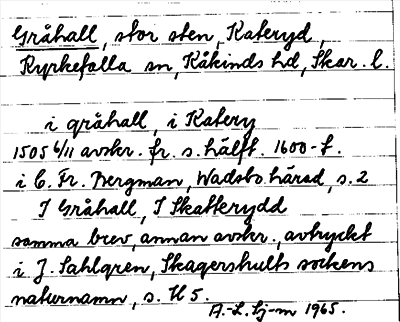 Gråhall, stor sten, Kateryd,
Kyrkefalla sn, Kåkinds hd, Skar. l.
i gråhall, i Katery
1505 6/11 avskr. fr. s. hälft. 1600-t.
i C. Fr. Bergman, Wadsbo härad, s. 2
I Gråhall, I Skatterydd
samma brev, annan avskr., avtryckt
i J. Sahlgren, Skagershults sockens
naturnamn, s. 45.
A.-L. Lj-m 1965.